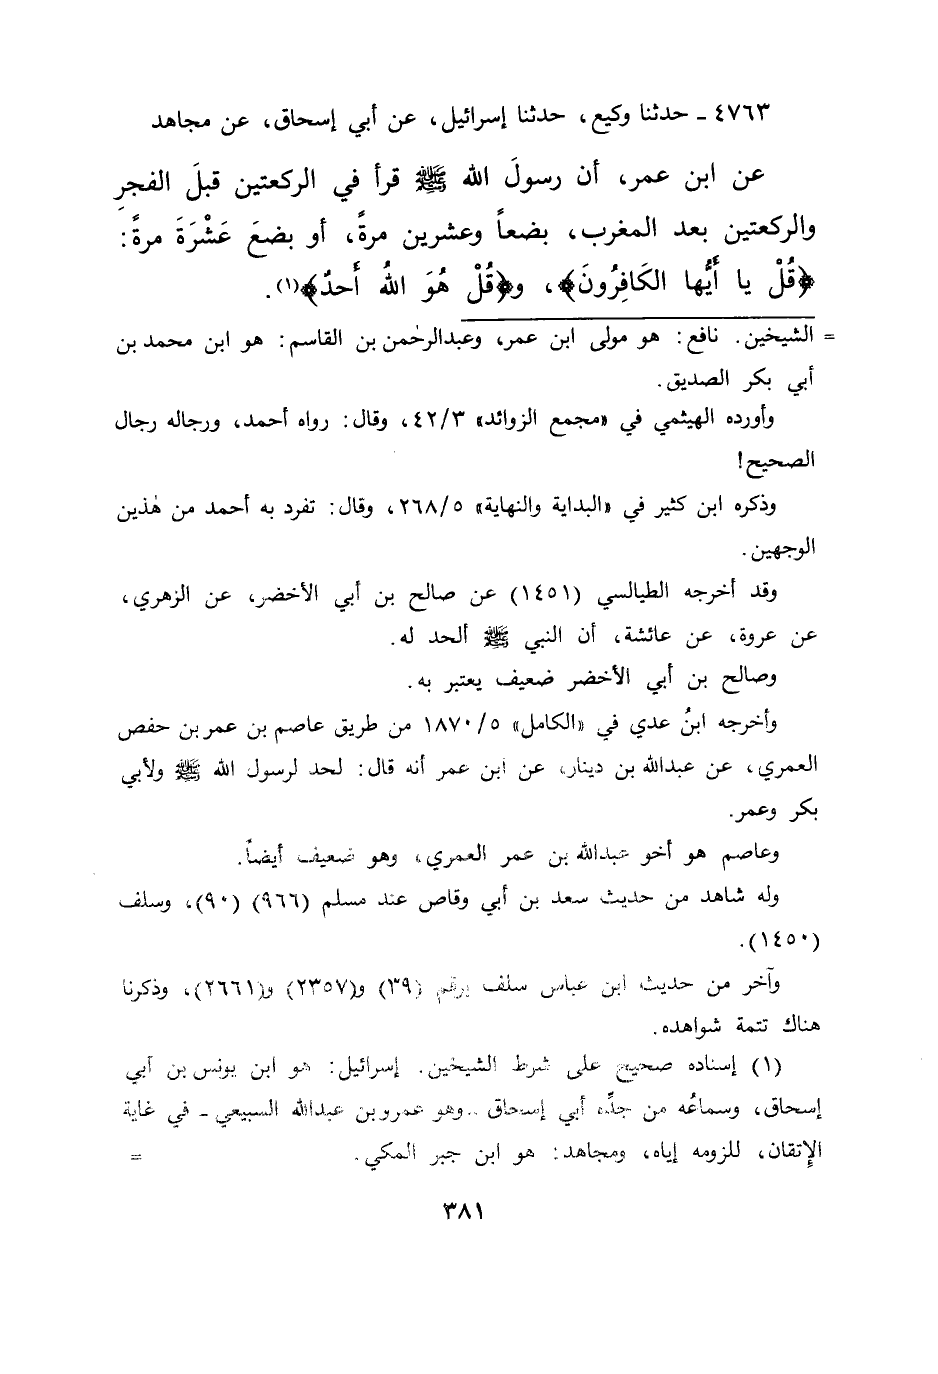 ٤٧٦٣ - حدثنا وكيع، حدثنا إسرائيل، عن أبي إسحاق، عن مجاهد
عن ابن عمر، أن رسولَ الله ﷺ قرأ في الركعتين قبلَ الفجرِ
والركعتين بعد المغرب، بضعاً وعشرين مرةً، أو بضعَ عَشْرَةَ مرةً:
﴿قُلْ يا أَيُّها الكَافِرُونَ﴾، و﴿قُلْ هُوَ اللهُ أَحدٌ﴾(١).
= الشيخين. نافع: هو مولى ابن عمر، وعبدالرحمٰن بن القاسم: هو ابن محمد بن
أبي بكر الصديق.
وأورده الهيثمي في «مجمع الزوائد» ٤٢/٣، وقال: رواه أحمد، ورجاله رجال
الصحيح!
وذكره ابن كثير في «البداية والنهاية» ٢٦٨/٥، وقال: تفرد به أحمد من هٰذين
الوجهين.
وقد أخرجه الطيالسي (١٤٥١) عن صالح بن أبي الأخضر، عن الزهري،
عن عروة، عن عائشة، أن النبي ﷺ ألحد له.
وصالح بن أبي الأخضر ضعيف يعتبر به.
وأخرجه ابنُ عدي في «الكامل» ١٨٧٠/٥ من طريق عاصم بن عمر بن حفص
العمري، عن عبدالله بن دينار، عن ابن عمر أنه قال: لحد لرسول الله ﷺ ولأبي
بكر وعمر.
وعاصم هو أخو عبدالله بن عمر العمري، وهو ضعيف أيضاً.
وله شاهد من حديث سعد بن أبي وقاص عند مسلم (٩٦٦) (٩٠)، وسلف
(١٤٥٠).
وآخر من حديث ابن عباس سلف برقم (٣٩) و(٢٣٥٧) و(٢٦٦١)، وذكرنا
هناك تتمة شواهده.
(١) إسناده صحيح على شرط الشيخين. إسرائيل: هو ابن يونس بن أبي
إسحاق، وسماعُه من جدِّه أبي إسحاق - وهو عمرو بن عبدالله السبيعي - في غاية
الإتقان، للزومه إياه، ومجاهد: هو ابن جبر المكي. =
٣٨١